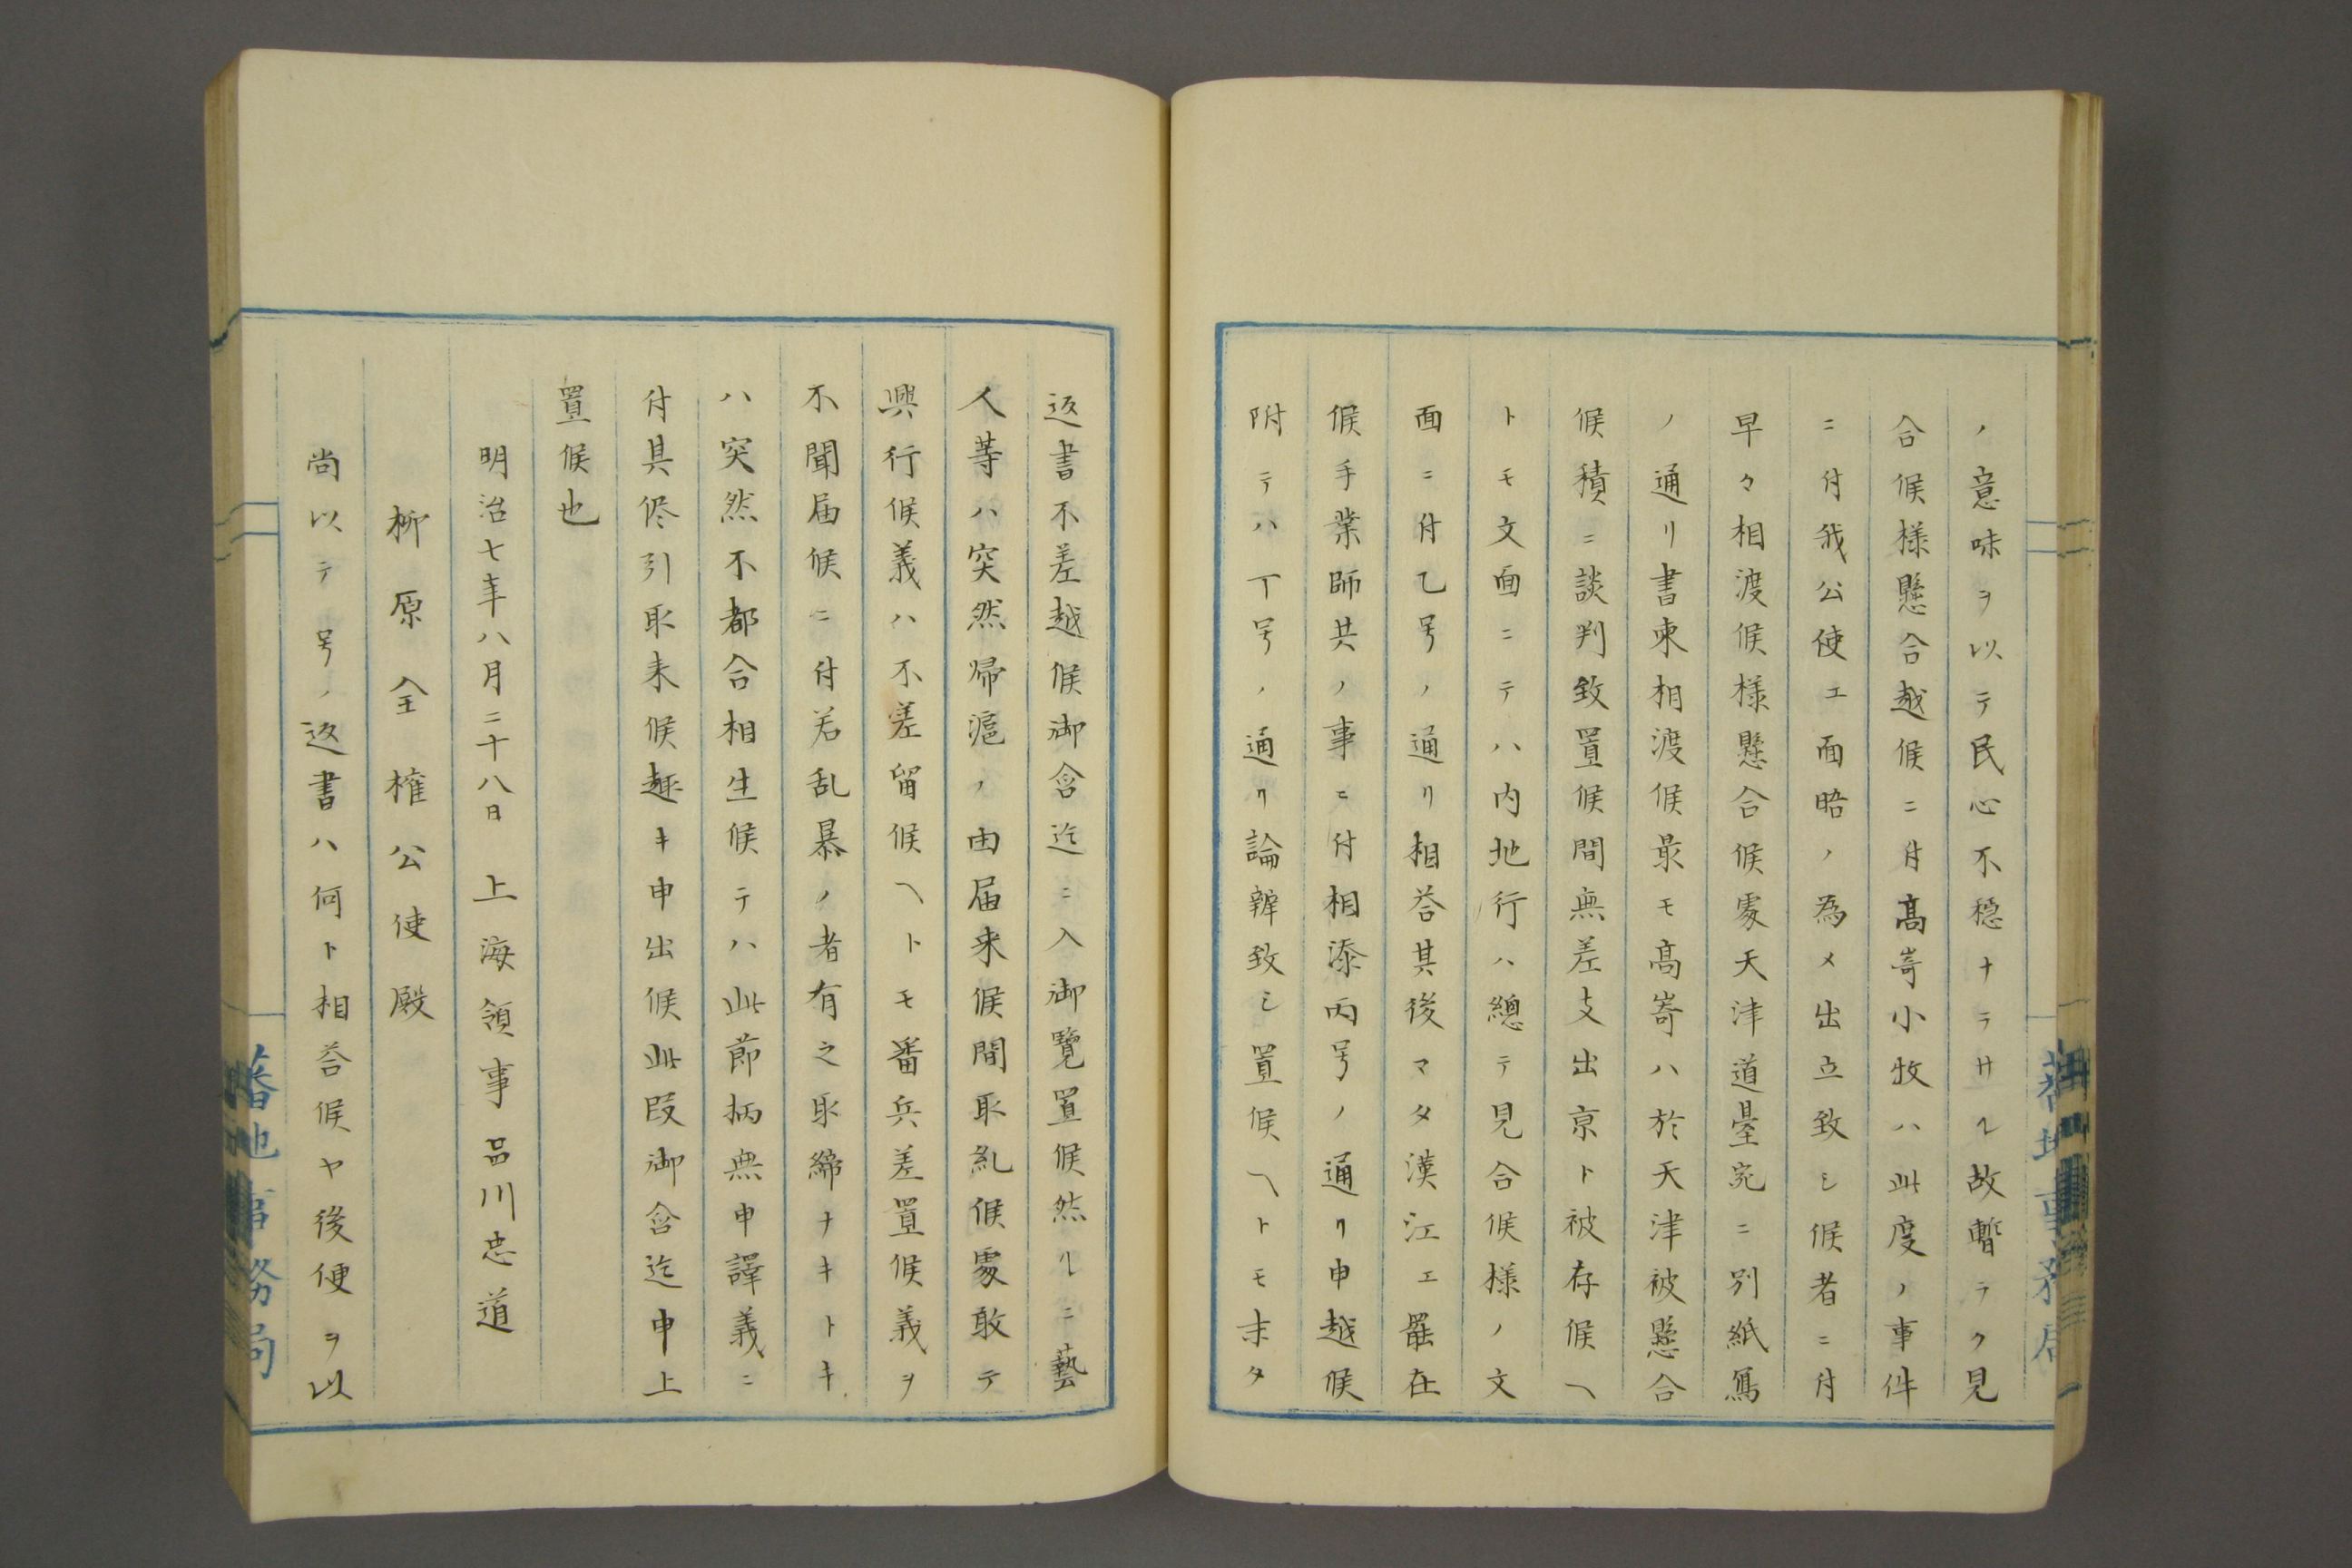 ノ意味ヲ以テ民心不穏ナラサル故暫ラク見
合候様懸合越候ニ付髙嵜小牧ハ此度ノ事件
ニ付我公使エ面晤ノ為メ出立致シ候者ニ付
早々相渡候様懸合候處天津道臺宛ニ別紙寫
ノ通リ書柬相渡候最モ髙嵜ハ於天津被懸合
候積ニ談判致置候間無差支出京ト被存候ヘ
トモ文面ニテハ内地行ハ總テ見合候様ノ文
面ニ付乙号ノ通リ相荅其後マタ漢江エ罷在
候手業師共ノ事ニ付相添丙号ノ通リ申越候
附テハ丁号ノ通リ論辨致シ置候ヘトモ未タ
返書不差越候御含迄ニ入御覽置候然ルニ藝
人等ハ突然帰滬ノ由届来候間取糺候處敢テ
興行候義ハ不差留候ヘトモ番兵差置候義ヲ
不聞届候ニ付若乱暴ノ者有之取締ナキトキ
ハ突然不都合相生候テハ此節柄無申譯義ニ
付具侭引取来候趣キ申出候此段御含迄申上
置候也
明治七年八月二十八日 上海領事品川忠道
栁原全權公使殿
尚以テ号ノ返書ハ何ト相荅候ヤ後便ヲ以
蕃地事務局
蕃地事務局